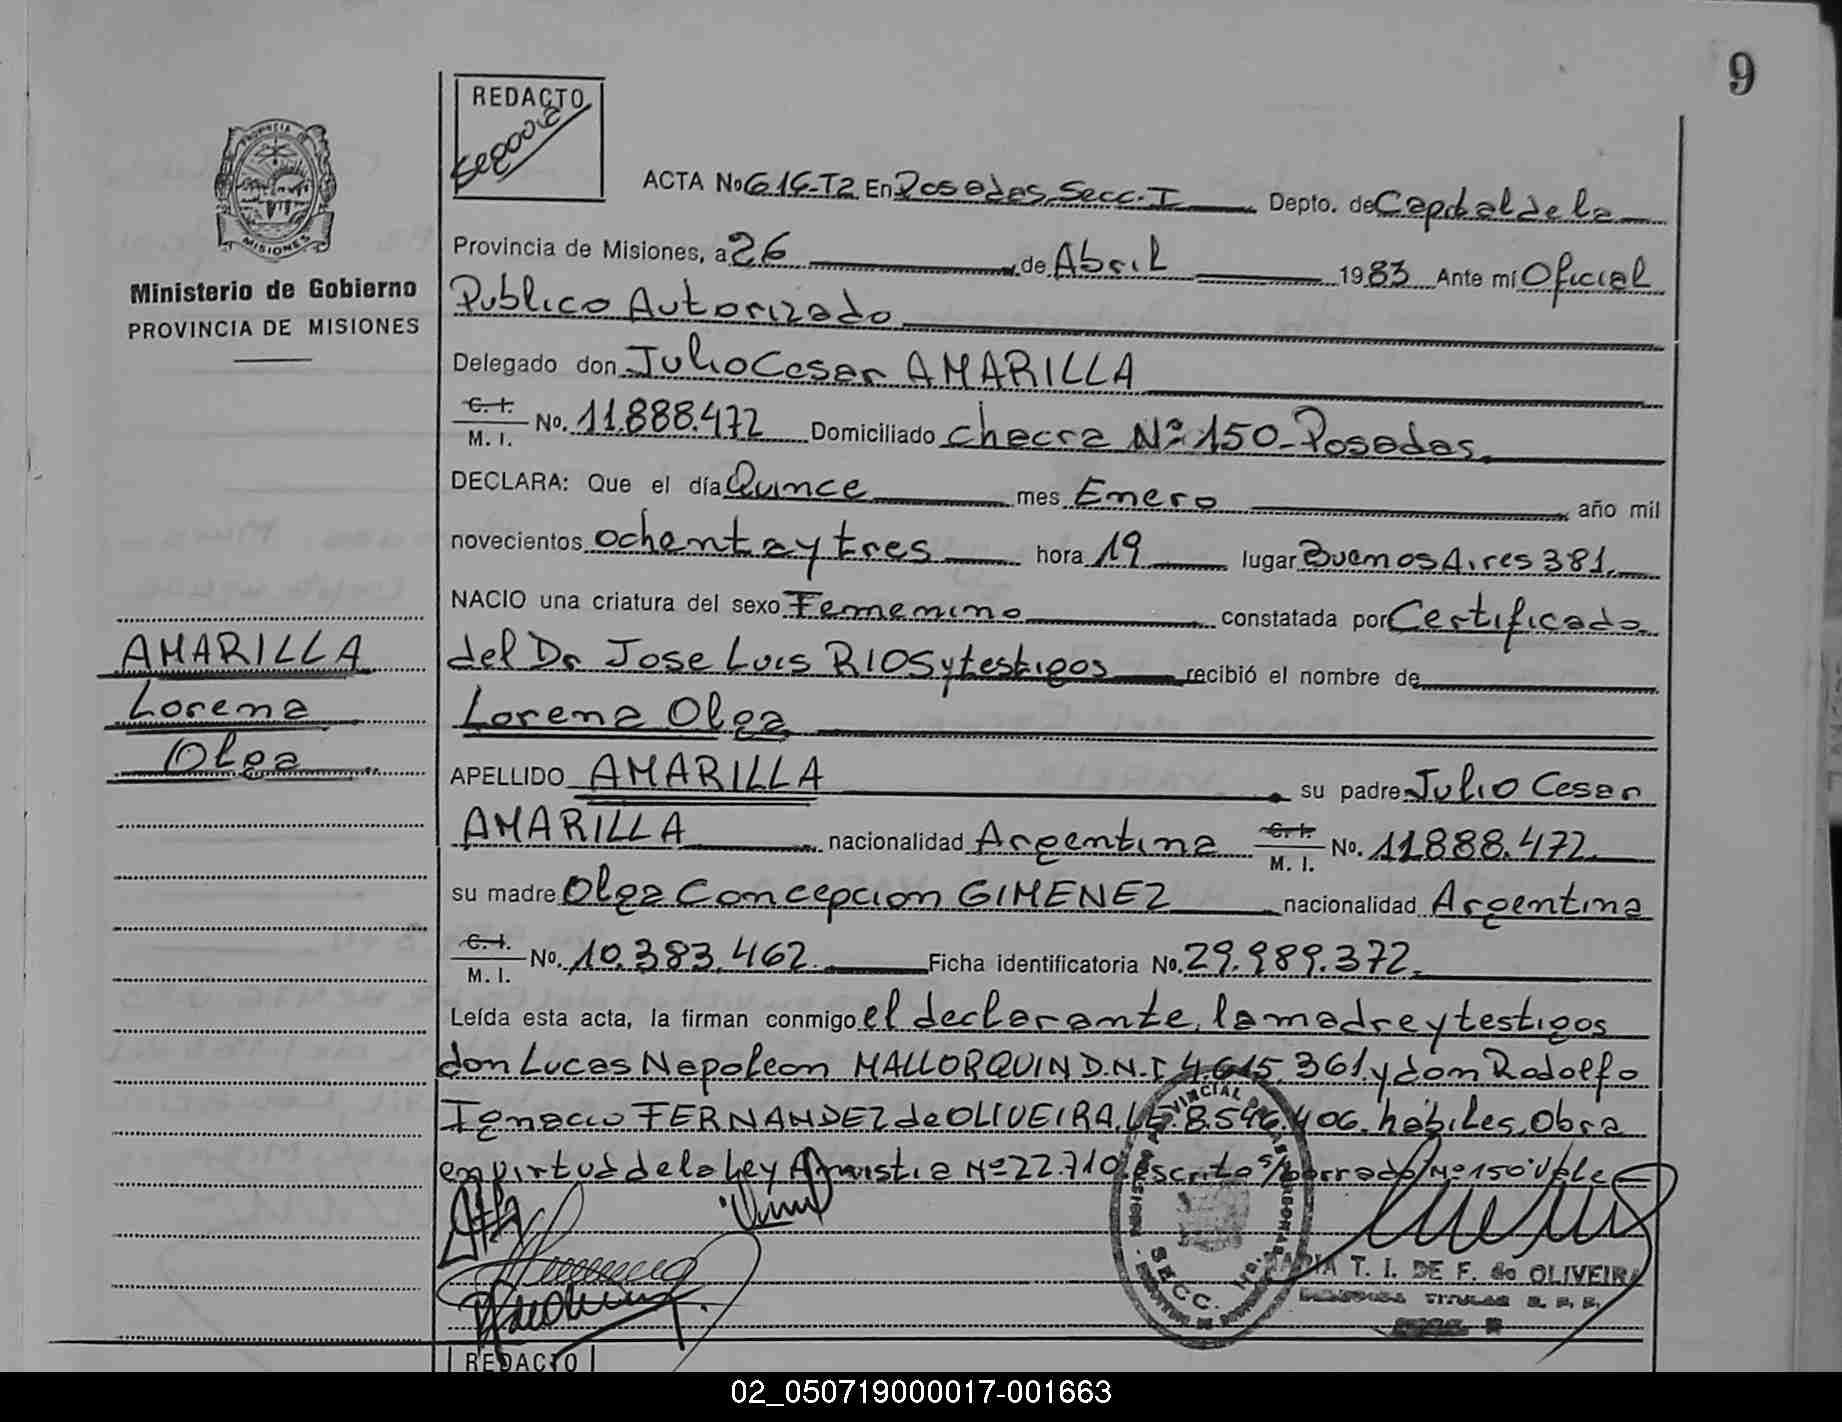 9
REDACTO
Segovia
PROVINCIA
MISIONES
Ministerio de Gobierno
PROVINCIA DE MISIONES
AMARILLA
Lorena
Olga
ACTA No 616-T2 En Posadas, Secc. I Depto. de Capital de la
Provincia de Misiones, a 26 de Abril 1983 Ante mí Oficial
Publico Autorizado
Delegado don Julio Cesar AMARILLA
C. I. M. I. No. 11.888.472 Domiciliado Chacra Nº 150 - Posadas
DECLARA: Que el día Quince mes Enero año mil
novecientos ochenta y tres hora 19 lugar Buenos Aires 381.
NACIO una criatura del sexo Femenino constatada por Certificado
del Dr Jose Luis RIOS y testigos recibió el nombre de
Lorena Olga
APELLIDO AMARILLA su padre Julio Cesar
AMARILLA nacionalidad Argentina C. I. M. I. No. 11.888.472.
su madre Olga Concepcion GIMENEZ nacionalidad Argentina
C. I. M. I. No. 10.383.462. Ficha identificatoria No. 29.989.372.
Leída esta acta, la firman conmigo el declarante, la madre y testigos
don Lucas Napoleon MALLORQUIN D.N.I 4.615.361. y don Rodolfo
Ignacio FERNANDEZ de OLIVEIRA. LE 8.546.406. hábiles. Obra
en virtud de la Ley Amnistia Nº 22.710. Escrito s/borrado/Nº 150: Vale
SECC. 1ra.
MARIA T. I. DE F. de OLIVEIRA
TITULAR
REDACTO
02_050719000017-001663